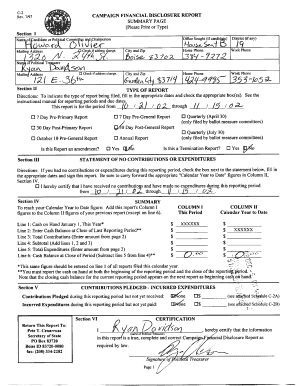 C-2
Rev. 7/97
CAMPAIGN FINANCIAL DISCLOSURE REPORT
SUMMARY PAGE
(Please Print or Type)
Section I
Name of Candidate or Political Committee and Chairperson
Office Sought (if candidate)
District (if any)
Howard Olivier
House Seat B
19
Mailing Address
Check if address change
City and Zip
Home Phone
Work Phone
Boise 83702
384-9272
Name of Political Treasurer
Ryan Davidson
Mailing Address
Check if address change
City and Zip
Home Phone
Work Phone
121 E. 36th
Garden City 83714
Section II
TYPE OF REPORT
Directions: To indicate the type of report being filed, fill in the appropriate dates and check the appropriate box(es). See the
instruction manual for reporting periods and due dates.
This report is for the period from 10 / 21 / 02 through 11 / 15 / 02
7 Day Pre-Primary Report
7 Day Pre-General Report
Quarterly (April 30)
(only filed by ballot measure committees)
30 Day Post-Primary Report
30 Day Post-General Report
Quarterly (July 30)
(only filed by ballot measure committees)
October 10 Pre-General Report
Annual Report
Is this Report an amendment? Yes No
Is this a Termination Report? Yes No
Section III
STATEMENT OF NO CONTRIBUTIONS OR EXPENDITURES
Directions: If you had no contributions or expenditures during this reporting period, check the box next to the statement below, fill in
the appropriate dates and sign this report. Be sure to carry forward the appropriate "Calendar Year to Date" figures in Column II,
Section IV.
I hereby certify that I have received no contributions and have made no expenditures during this reporting period
from 10 / 21 / 02 through 11 / 15 / 02
Section IV
SUMMARY
To reach your Calendar Year to Date figure: Add this report's Column I
figures to the Column II figures of your previous report (except on line 6).
COLUMN I
This Period
COLUMN II
Calendar Year to Date
Line 1: Cash on Hand January 1, This Year*
$ XXXXXX
$
Line 2: Enter Cash Balance at Close of Last Reporting Period**
$
$ XXXXXX
Line 3: Total Contributions (Enter amount from page 2)
$
$
Line 4: Subtotal (Add lines 1, 2 and 3)
$
$
Line 5: Total Expenditures (Enter amount from page 2)
$
$
Line 6: Cash Balance at Close of Period (Subtract line 5 from line 4)**
$ 0.00
$ 0.00
*This same figure should be entered on line 1 of all reports filed this calendar year.
**You must report the cash on hand at both the beginning of the reporting period and the close of the reporting period.
Note that the closing cash balance for the current reporting period appears on the next report as beginning cash on hand.
Section V
CONTRIBUTIONS PLEDGED - INCURRED EXPENDITURES
Contributions Pledged during this reporting period but not yet received:
None
$
(see attached Schedule C-2A)
Incurred Expenditures during this reporting period but not yet paid:
None
$
(see attached Schedule C-2B)
Section VI
CERTIFICATION
Return This Report To:
Pete T. Cenarrusa
Secretary of State
PO Box 83720
Boise ID 83720-0080
fax: (208) 334-2282
I Ryan Davidson hereby certify that the information
in this report is a true, complete and correct Campaign Financial Disclosure Report as
required by law.
Signature of Political Treasurer
Page 1